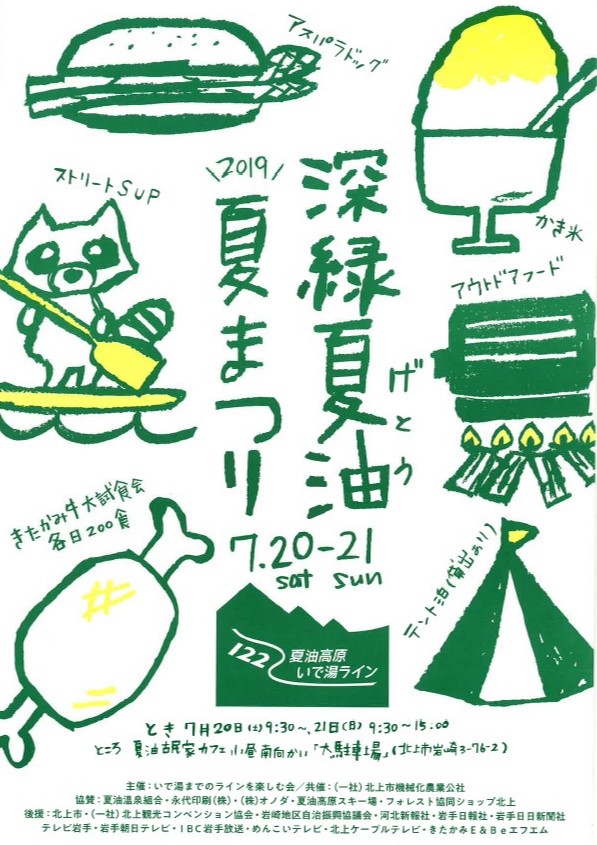 アスパラドッグ
＼2019／
深緑夏油
げとう
夏まつり
ストリートSUP
かき氷
アウトドアフード
きたかみ牛大試食会
各日200食
テント泊(貸出あり)
7.20-21
sat sun
122
夏油高原
いで湯ライン
とき 7月20日(土)9:30〜,21日(日)9:30〜15:00
ところ 夏油古民家カフェ小昼南向かい「大駐車場」(北上市岩崎3-76-2)
主催：いで湯までのラインを楽しむ会／共催：(一社)北上市機械化農業公社
協賛：夏油温泉組合・永代印刷(株)・(株)オノダ・夏油高原スキー場・フォレスト協同ショップ北上
後援：北上市・(一社)北上観光コンベンション協会・岩崎地区自治振興協議会・河北新報社・岩手日報社・岩手日日新聞社
テレビ岩手・岩手朝日テレビ・IBC岩手放送・めんこいテレビ・北上ケーブルテレビ・きたかみE＆Beエフエム